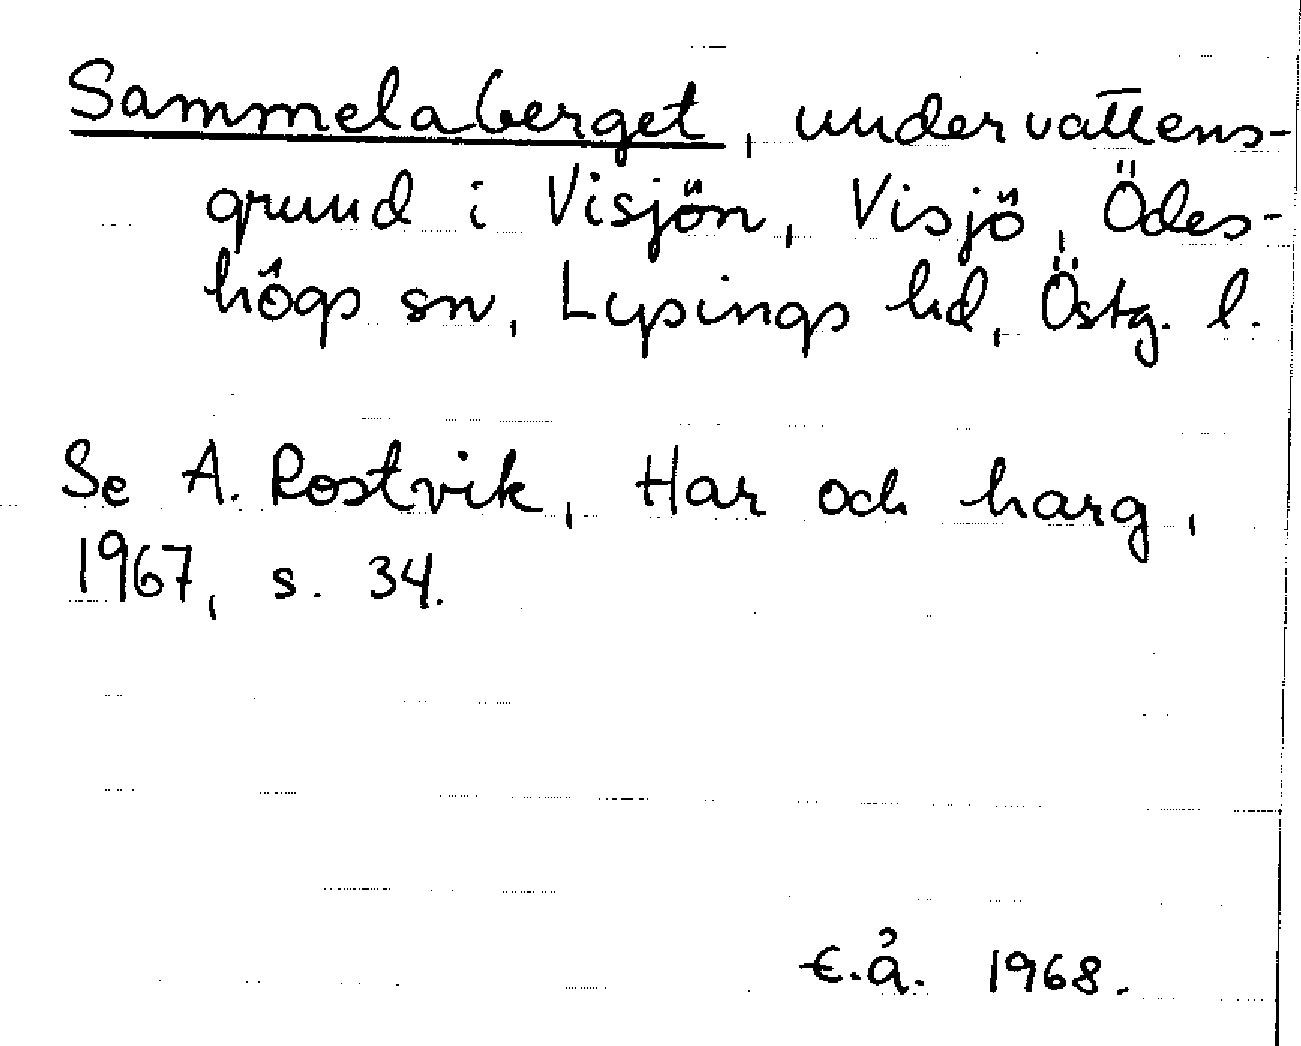 Sammelaberget, undervattens-
grund i Visjön, Visjö, Ödes-
högs sn, Lysings hd, Östg. l.
Se A. Rostvik, Har och harg,
1967, s. 34.
E.Å. 1968.